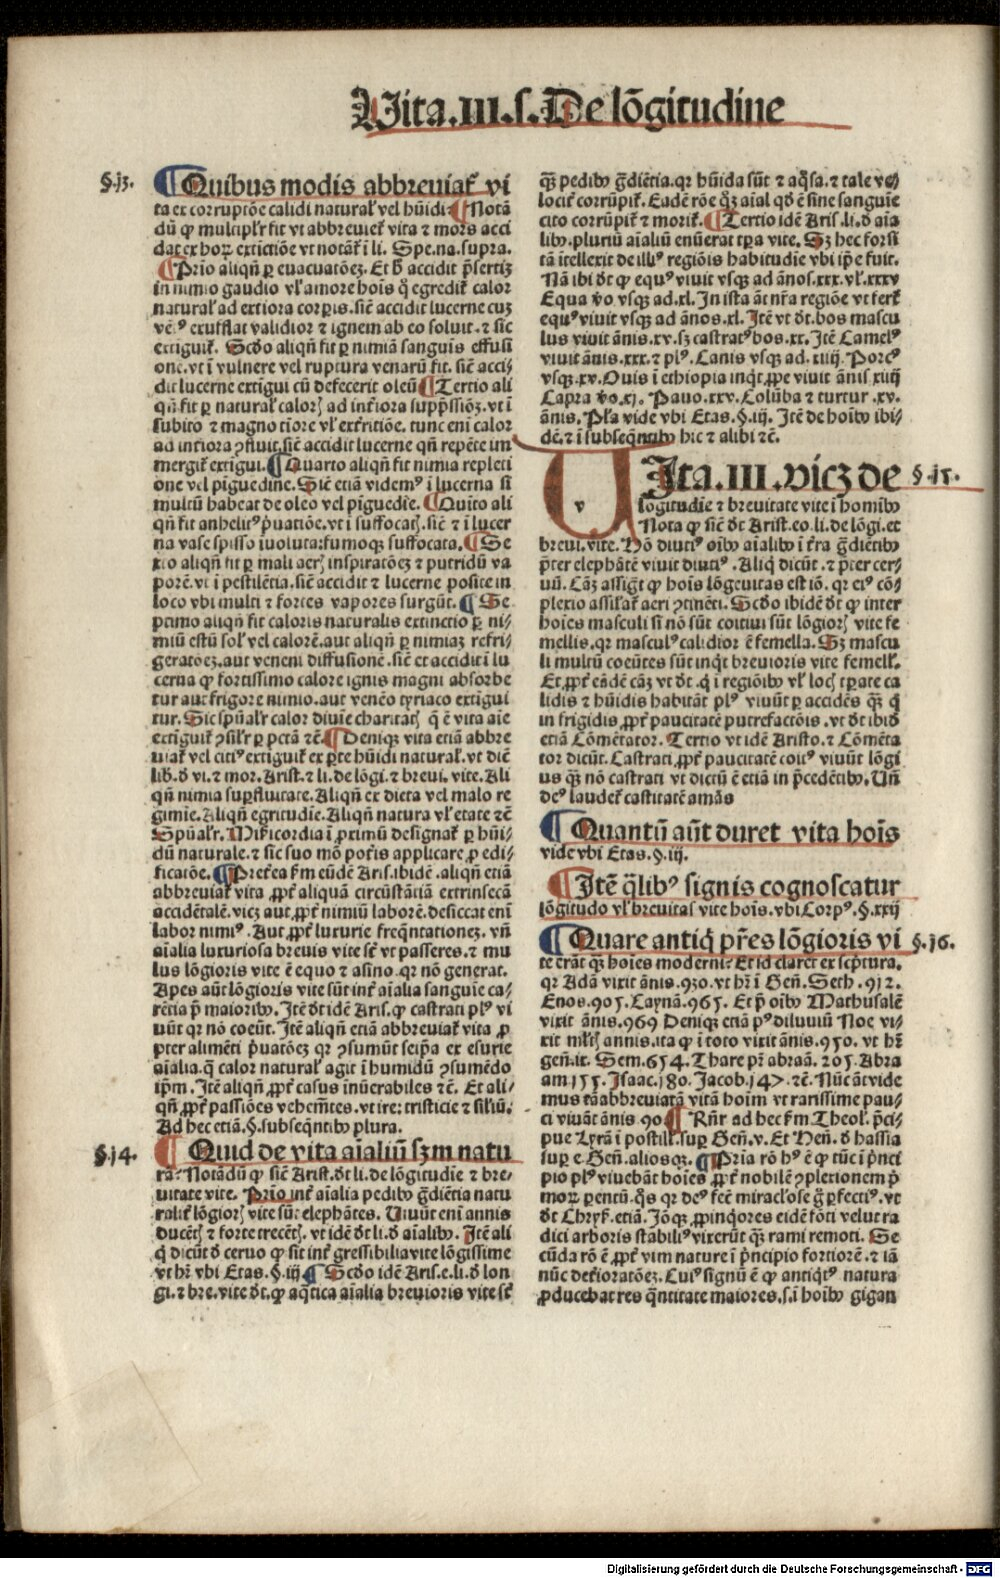 Vita.III.s.De lōgitudine
§.13.
¶Quibus modis abbreuiat᷑ vi
ta et corruptōe calidi natural' vel hūidi ¶Notā
dū ꝙ multipl'r fit vt abbreuiet᷑ vita ⁊ mors acci
dat ex hoꝝ extictiōe vt notāt᷑ ī li. Spe.na.supra.
¶Prīo aliqn̄ ꝑ euacuatōeꝫ. Et ħ accidit p̄sertiꝫ
in nimio gaudio vl' amore hoīs q̄ egredit᷑ calor
natural' ad extiora corꝑis. sic̄ accidit lucerne cuꝫ
vēt᷒ exufflat validior ⁊ ignem ab eo soluit. ⁊ sic
extiguit᷑. Scd̄o aliqn̄ fit ꝑ nimiā sanguīs effusi
onē. vt ī vulnere vel ruptura venarū fit. sic̄ acci⸗
dit lucerne extigui cū defecerit oleū ¶Tertio ali
qn̄ fit ꝑ natural' caloꝝ ad int᷑iora supp̄ssiōꝫ. vt ī
subito ⁊ magno tiore vl' ext᷑ritiōe. tunc eni calor
ad intiora ꝯfluit. sic̄ accidit lucerne qn̄ repēte im
mergit᷑ extigui. ¶Quarto aliqn̄ fit nimia repleti
one vel pīguedine. Sic̄ etiā videm᷒ ī lucerna si
multū habeat de oleo vel pīguedīe. ¶Quīto ali
qn̄ fit anhelit᷒ p̄uatiōe. vt ī suffocatꝭ. sic̄ ⁊ ī lucer
na vase spisso īuoluta: fumoqꝫ suffocata. ¶Se
xto aliqn̄ fit ꝑ mali aerꝭ inspiratōeꝫ ⁊ putridū va
porē. vt ī pestilētia. sic̄ accidit ⁊ lucerne posite in
loco vbi multi ⁊ fortes vapores surgūt. ¶Se
ptimo aliqn̄ fit caloris naturalis extinctio ꝑ ni⸗
miū estū sol' vel calorē. aut aliqn̄ ꝑ nimiaꝫ refri⸗
geratōeꝫ. aut veneni diffusionē. sic̄ et accidit ī lu
cerna ꝙ fortissimo calore ignis magni absorbe
tur aut frigore nimio. aut venēo tyriaco extigui
tur. Sic spūal'r calor diuīe charitatꝭ q̄ ē vita aīe
extiguit᷑ ꝯsil'r ꝑ pctā ⁊c̄. ¶Deniqꝫ vita etiā abbre
uiat᷑ vel citi᷒ extiguit᷑ ex ꝑte hūidi natural'. vt dic̄
lib. d̄ vi. ⁊ mor. Arist. ⁊ li. de lōgi. ⁊ breui. vite. Ali
qn̄ nimia suꝑfluitate. Aliqn̄ ex dieta vel malo re
gimīe. Aliqn̄ egritudīe. Aliqn̄ natura vl' etate ⁊c̄
Spūal'r. Mīcordia ī ꝓximū designat᷑ ꝑ hūi⸗
dū naturale. ⁊ sic suo mō pot̄is applicare ꝓ edi⸗
ficatōe. ¶Pret᷑ea fm eūdē Aris. ibidē. aliqn̄ etiā
abbreuiat᷑ vita ꝓpt᷑ aliquā circūstātiā extrinsecā
accidētalē. vicꝫ aut ꝓpt᷑ nimiū laborē. desiccat eni
labor nimi᷒. Aut ꝓpt᷑ luxurie freq̄ntationeꝫ. vn̄
aīalia luxuriosa breuis vite sūt vt passeres. ⁊ mu
lus lōgioris vite ē equo ⁊ asīno. qr nō generat.
Apes aūt lōgioris vite sūt int᷑ aīalia sanguīe ca⸗
rētia p̄ maioribꝰ. Itē dt̄ idē Aris. ꝙ castrati pl᷒ vi
uūt qr nō coeūt. Itē aliqn̄ etiā abbreuiat᷑ vita ꝓ
pter alimēti p̄uatōeꝫ qr ꝯsumūt seip̄a ex esurie
aīalia. q̄ calor natural' agit ī humidū ꝯsumēdo
ip̄m. Itē aliqn̄ ꝓpt᷑ casus īnūerabiles ⁊c̄. Et ali⸗
qn̄ ꝓpt᷑ passiōes vehemētes. vt ire: tristicie ⁊ silīu.
Ad hec etiā. §. subseq̄ntibꝰ plura.
§.14.
¶Quid de vita aīaliū sꝫm natu
ra? Notādū ꝙ sic̄ Arist. dt̄ li. de lōgitudīe ⁊ bre⸗
uitate vite. Prīo int᷑ aīalia pedibꝰ ḡdiētia natu
ralit᷑ lōgiorꝭ vite sūt elephātes. Uiuūt eni annis
ducētꝭ ⁊ forte trecētꝭ. vt idē dt̄ li. d̄ aīalibꝰ. Itē ali
q̄ dicūt d̄ ceruo ꝙ sit int᷑ gressibilia vite lōgissime
vt hr̄ vbi Etas. §. iij ¶Scd̄o idē Aris. e. li. d̄ lon
gi. ⁊ bre. vite dt̄. ꝙ aq̄tica aīalia breuioris vite sūt
qꝫ pedibꝰ ḡdiētia. qr hūida sūt ⁊ aq̄sa. ⁊ tale ve⸗
locit᷑ corrūpit᷑. Eadē rōe qꝫ aīal qd̄ ē sine sanguīe
cito corrūpit᷑ ⁊ morit᷑. ¶Tertio idē Aris. li. d̄ aīa
libꝰ. pluriū aīaliū enūerat tꝑa vite. Sꝫ hec forsi
tā ītellexit de illi᷒ regiōis habitudīe vbi ip̄e fuit.
Nā ibi dt̄ ꝙ equ᷒ viuit vsqꝫ ad ānos. xxx. vl'. xxxv
Equa v̄o vsqꝫ ad. xl. In ista āt nr̄a regiōe vt fert᷑
equ᷒ viuit vsqꝫ ad ānos. xl. Itē vt dt̄. bos mascu
lus viuit ānis. xv. sꝫ castrat᷒ bos. xx. Itē Camel᷒
viuit ānis. xxx. ⁊ pl᷒. Canis vsqꝫ ad. xiiij. Porc᷒
vsqꝫ. xv. Ouis ī ethiopia inq̄t ꝓpe viuit ānis xiiij
Capra v̄o. xj. Pauo. xxv. Colūba ⁊ turtur. xv.
ānis. Pl'a vide vbi Etas. §. iij. Itē de hoībꝰ ibi⸗
dē. ⁊ ī subseq̄ntibꝰ hic ⁊ alibi ⁊c̄.
v
Ita.III.vicꝫ de
§.15.
lōgitudīe ⁊ breuitate vite ī homībꝰ
Nota ꝙ sic̄ dt̄ Arist. eo. li. de lōgi. et
breui. vite. Hō diuti᷒ oībꝰ aīalibꝰ ī t᷑ra ḡdiētibꝰ
p̄ter elephātē viuit diuti᷒. Aliq̄ dicūt. ⁊ p̄ter cer⸗
uū. Cāꝫ assignt ꝙ hoīs lōgeuitas est iō. qr ei᷒ cō⸗
plexio assilat᷑ aeri ꝯtinēti. Scd̄o ibidē dt̄ ꝙ inter
hoīes masculi si nō sūt coitiui sūt lōgiorꝭ vite fe
mellis. qr mascul᷒ calidior ē femella. Sꝫ mascu
li multū coeūtes sūt inq̄t breuioris vite femell'.
Et ꝓpt᷑ eādē cāꝫ vt dt̄. q̄ ī regiōibꝰ vl' locꝭ tꝑate ca
lidis ⁊ hūidis habitāt pl᷒ viuūt ꝑ accidēs qꝫ q̄
in frigidis. ꝓpt᷑ paucitatē putrefactōis. vt dt̄ ibid̄
etiā Cōmētator. Tertio vt idē Aristo. ⁊ Cōmēta
tor dicūt. Castrati ꝓpt᷑ paucitatē coit᷒ viuūt lōgi
us qꝫ nō castrati vt dictū ē etiā in p̄cedētibꝰ. Un̄
de᷒ laudet᷑ castitatē amās
¶Quantū aūt duret vita hoīs
vide vbi Etas. §. iij.
¶Itē q̄lib᷒ signis cognoscatur
lōgitudo vl' breuitas vite hoīs. vbi Corp᷒. §. xxij
¶Quare antiq̄ pr̄es lōgioris vi
§.16.
te erāt qꝫ hoīes moderni? Et id claret ex scp̄tura.
qr Adā vixit ānis. 930. vt hr̄ ī Gen̄. Seth. 912.
Enos. 905. Caynā. 965. Et p̄ oībꝰ Mathusalē
vixit ānis. 969 Deniqꝫ etiā p᷒ diluuiū Noe vi⸗
xit mltꝭ annis. ita ꝙ ī toto vixit ānis. 950. vt hr̄
gen̄. ix. Sem. 654. Thare pr̄ abraā. 205. Abra
am. 155. Isaac. 180. Jacob. 147. ⁊c̄. Nūc āt vide
mus tā abbreuiatā vitā hoīm vt rarissime pau⸗
ci viuāt ānis. 90 ¶Rn̄r ad hec fm Theol'. p̄ci⸗
pue Lyrā ī postill'. suꝑ Gen̄. v. Et Hen̄. d̄ hassia
suꝑ e. Gen̄. aliosqꝫ. ¶Prīa rō h᷒ ē ꝙ tūc ī p̄nci
pio pl᷒ viuebāt hoīes ꝓpt᷑ nobilē ꝯplexionem p̄
moꝝ parentū. q̄s qr de᷒ fec̄ miracl'ose ḡ ꝑfecti᷒. vt
dt̄ Chrys. etiā. Iōqꝫ ꝓpinq̄ores eidē fōti velut ra
dici arboris stabili᷒ vixerūt qꝫ rami remoti. Se
cūda rō ē ꝓpt᷑ vim nature ī p̄ncipio fortiorē. ⁊ iā
nūc det᷑ioratōeꝫ. Cui᷒ signū ē ꝙ antiq̄t᷒ natura
ꝓducebat res q̄ntitate maiores. s. ī hoībꝰ gigan
Digitalisierung gefördert durch die Deutsche Forschungsgemeinschaft - DFG